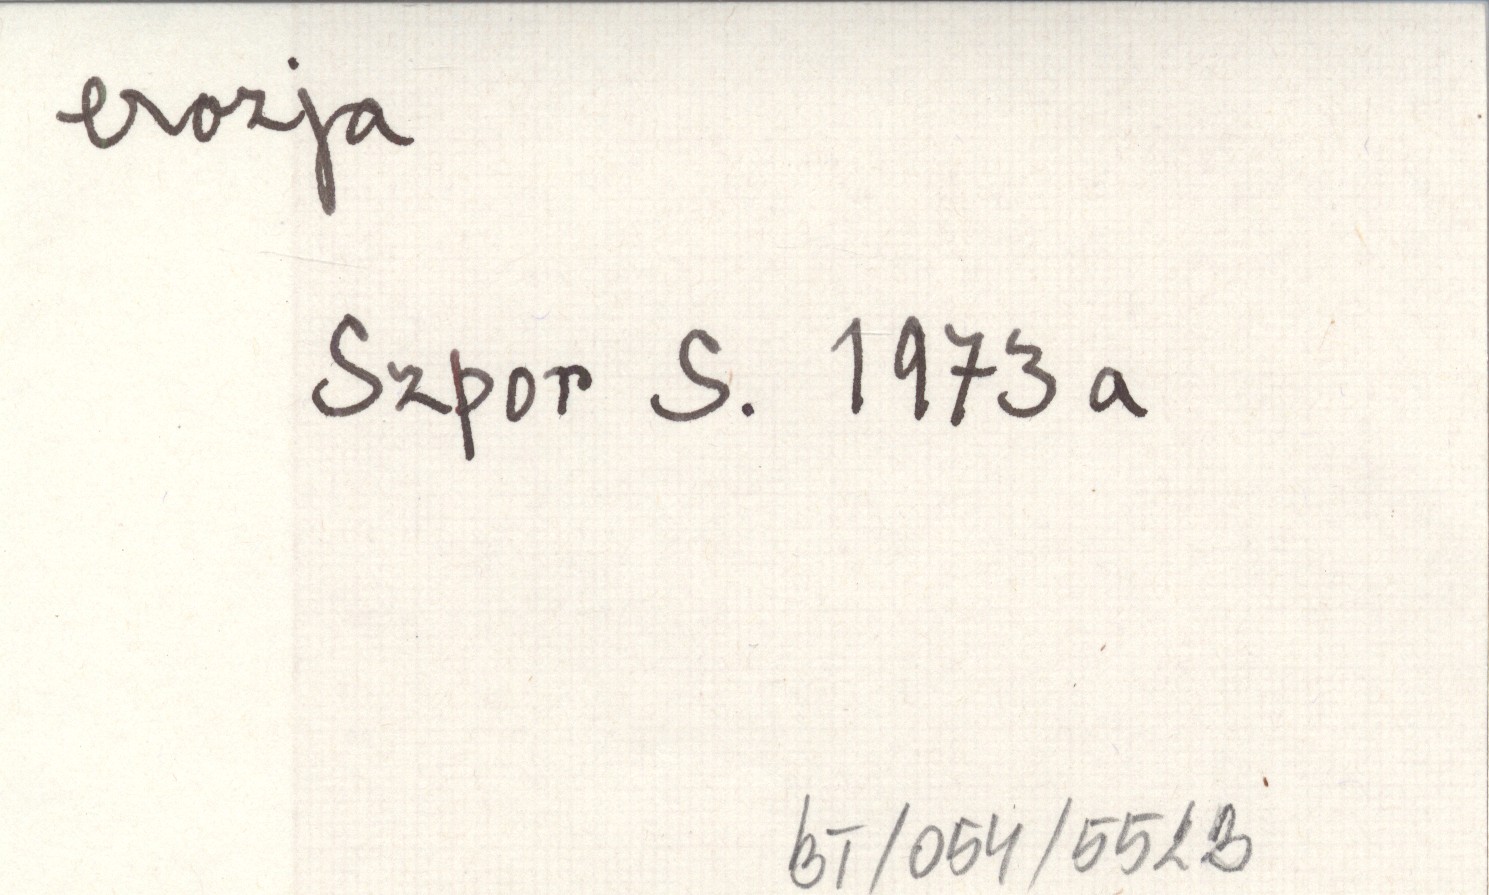 erozja
Szpor S. 1973a
BT/054/5523